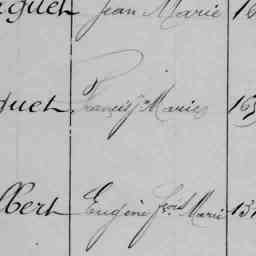 guet Jean Marie 16
quet François Marie 165
lbert Eugène fois Marie 137